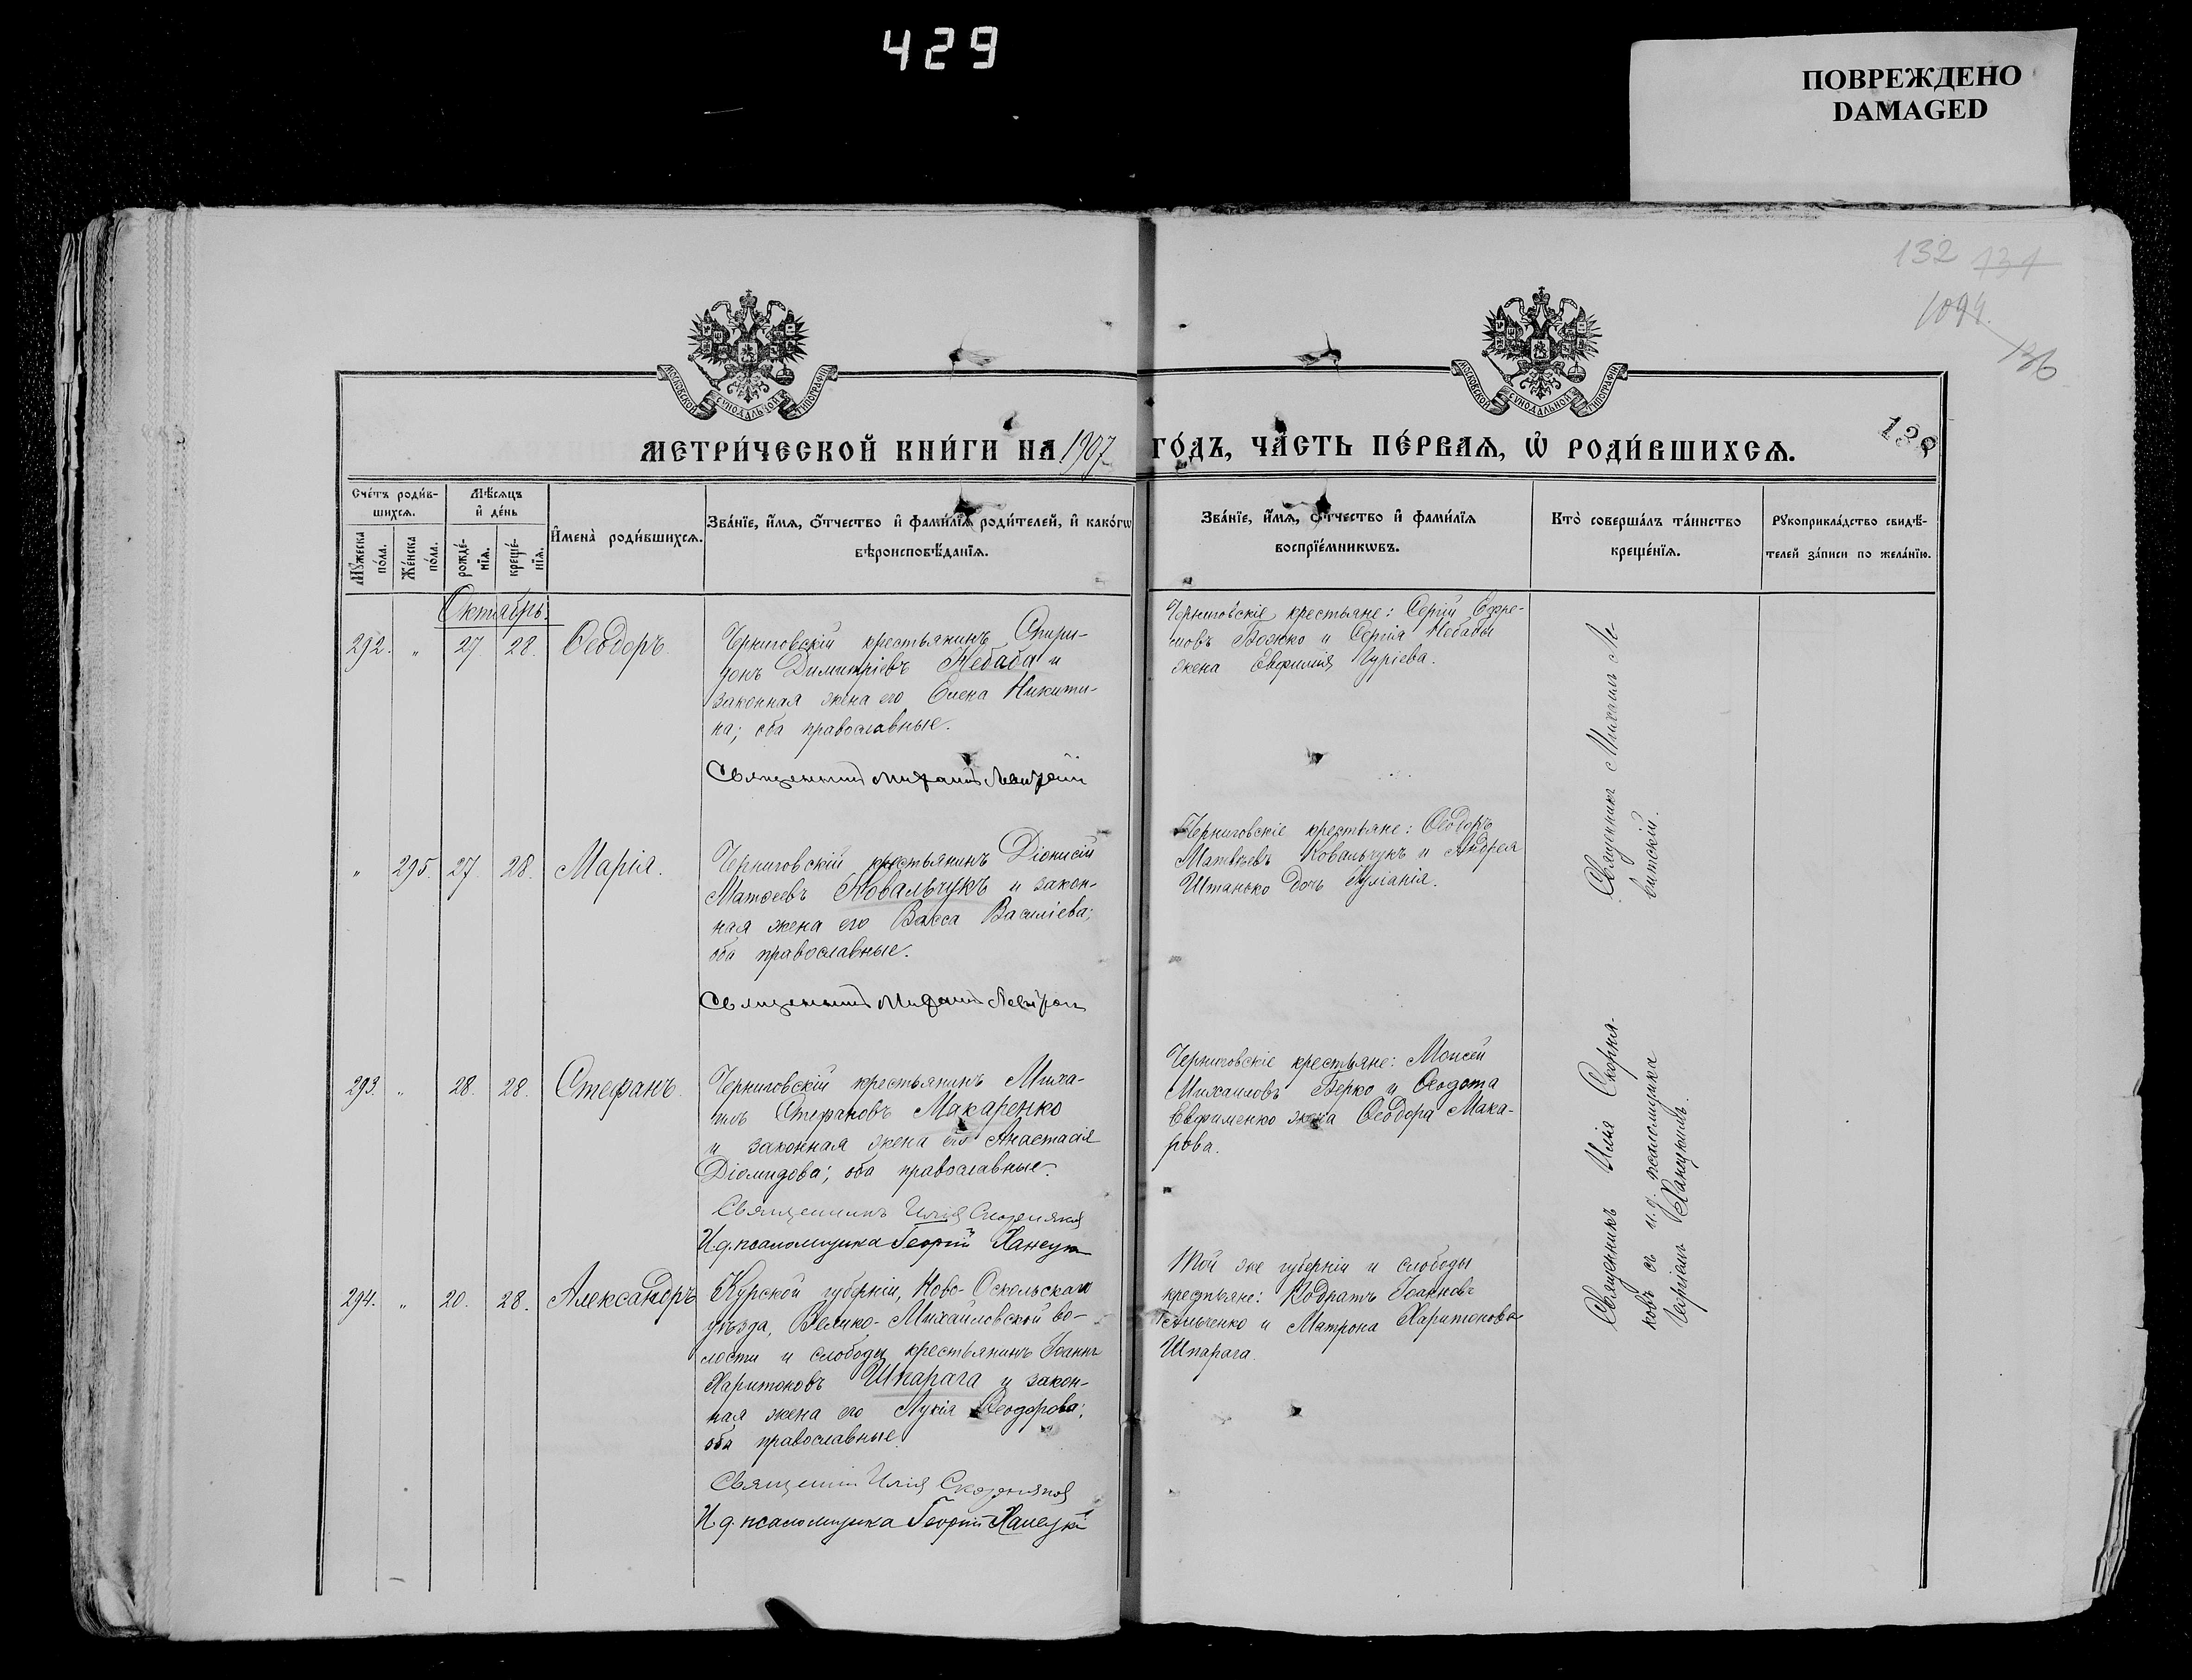 429
ПОВРЕЖДЕНО
DAMAGED
132 131
1094.
136
МЕТРИ́ЧЕСКОЙ КНИ́ГИ НА 1907 ГО́ДЪ, ЧА́СТЬ ПЕ́РВАЯ, Ѡ РОДИ́ВШИХСЯ.
МОСКОВСКОЙ СѴНОДАЛЬНОЙ ТИПОГРАФІИ
МОСКОВСКОЙ СѴНОДАЛЬНОЙ ТИПОГРАФІИ
Сче́тъ роди́в-
шихся.
Мѣ́сяцъ
и҆ де́нь
Мꙋ́жеска
по́ла.
Же́нска
по́ла.
рожде́-
нїя.
креще́-
нїя.
И҆мена̀ роди́вшихся.
Зва́нїе, и҆́мя, ѻ҆́тчество и҆ фами́лїя роди́телей, и҆ како́гѡ
вѣроисповѣ́данїя.
Зва́нїе, и҆́мя, ѻ҆́тчество и҆ фами́лїя
воспрїе́мникѡвъ.
Кто̀ соверша́лъ та́инство
креще́нїя.
Рꙋкоприкла́дство свидѣ́-
телей за́писи по жела́нїю.
Октябрь.
292. " 27. 28. Ѳеодоръ.
Черниговскій крестьянинъ Спири-
донъ Димитріевъ Небаба и
законная жена его Елена Никити-
на; оба православные.
Священникъ Михаилъ Левитскій
Черниговскіе крестьяне: Сергій Ефре-
мовъ Божко и Сергія Небабы
жена Евфимія Гуріева.
Священникъ Михаилъ Ле-
витскій.
" 295. 27. 28. Марія.
Черниговскій крестьянинъ Діонисій
Матѳеевъ Ковальчукъ и закон-
ная жена его Васса Василіева;
оба православные.
Священникъ Михаилъ
Черниговскіе крестьяне: Ѳеодоръ
Матвѣевъ Ковальчукъ и Андрея
Штанько дочь Іуліанія.
293. " 28. 28. Стефанъ.
Черниговскій крестьянинъ Миха-
илъ Стефановъ Макаренко
и законная жена его Анастасія
Діомидова; оба православные.
Священникъ Илія Скорняковъ
И.д. псаломщика Георгій
Черниговскіе крестьяне: Моисей
Михаиловъ Берко и Ѳеодота
Евфименко жена Ѳеодора Мака-
рова.
Священникъ Илія Скорня-
ковъ съ и.д. псаломщика
Георгіемъ
294. " 20. 28. Александръ
Курской губерніи, Ново-Оскольскаго
уѣзда, Велико-Михайловской во-
лости и слободы крестьянинъ Іоаннъ
Харитоновъ Шпарага и закон-
ная жена его Лукія Ѳеодорова;
оба православные.
Священникъ Илія Скорняковъ
И.д. псаломщика Георгій
Той же губерніи и слободы
крестьяне: Кодратъ Іоанновъ
и Матрона Харитонова
Шпарага.